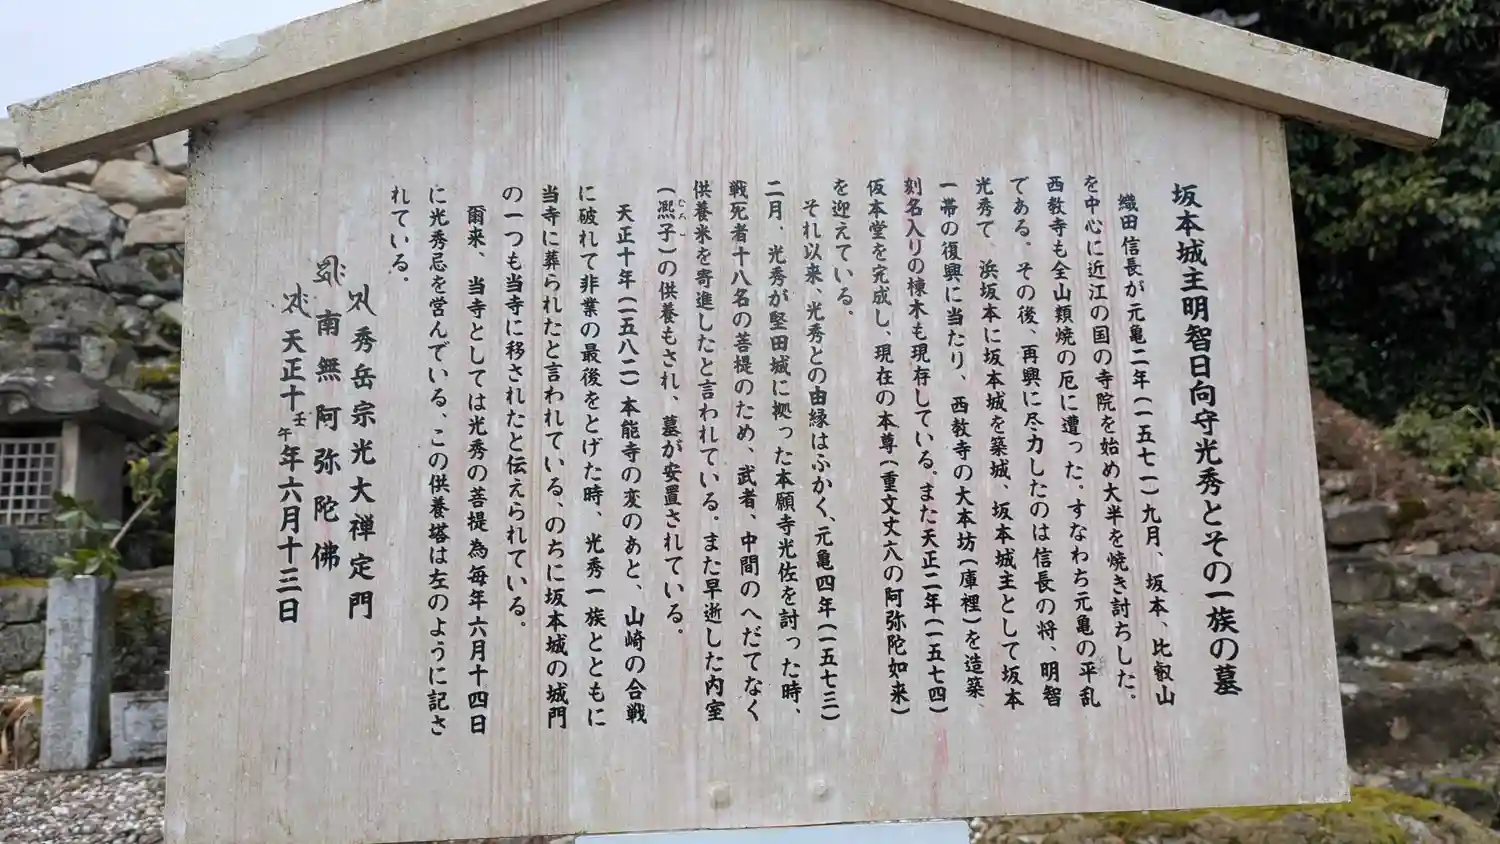 坂本城主明智日向守光秀とその一族の墓
織田信長が元亀二年(一五七一)九月、坂本、比叡山
を中心に近江の国の寺院を始め大半を焼き討ちした。
西教寺も全山類焼の厄に遭った。すなわち元亀の平乱
である。その後、再興に尽力したのは信長の将、明智
光秀て、浜坂本に坂本城を築城、坂本城主として坂本
一帯の復興に当たり、西教寺の大本坊(庫裡)を造築、
刻名入りの棟木も現存している。また天正二年(一五七四)
仮本堂を完成し、現在の本尊(重文丈六の阿弥陀如来)
を迎えている。
それ以来、光秀との由縁はふかく、元亀四年(一五七三)
二月、光秀が堅田城に拠った本願寺光佐を討った時、
戦死者十八名の菩提のため、武者、中間のへだてなく
供養米を寄進したと言われている。また早逝した内室
(凞子)の供養もされ、墓が安置されている。
天正十年(一五八二)本能寺の変のあと、山崎の合戦
に破れて非業の最後をとげた時、光秀一族とともに
当寺に葬られたと言われている、のちに坂本城の城門
の一つも当寺に移されたと伝えられている。
爾来、当寺としては光秀の菩提為毎年六月十四日
に光秀忌を営んでいる、この供養塔は左のように記さ
れている。
秀岳宗光大禅定門
南無阿弥陀佛
天正十壬午年六月十三日